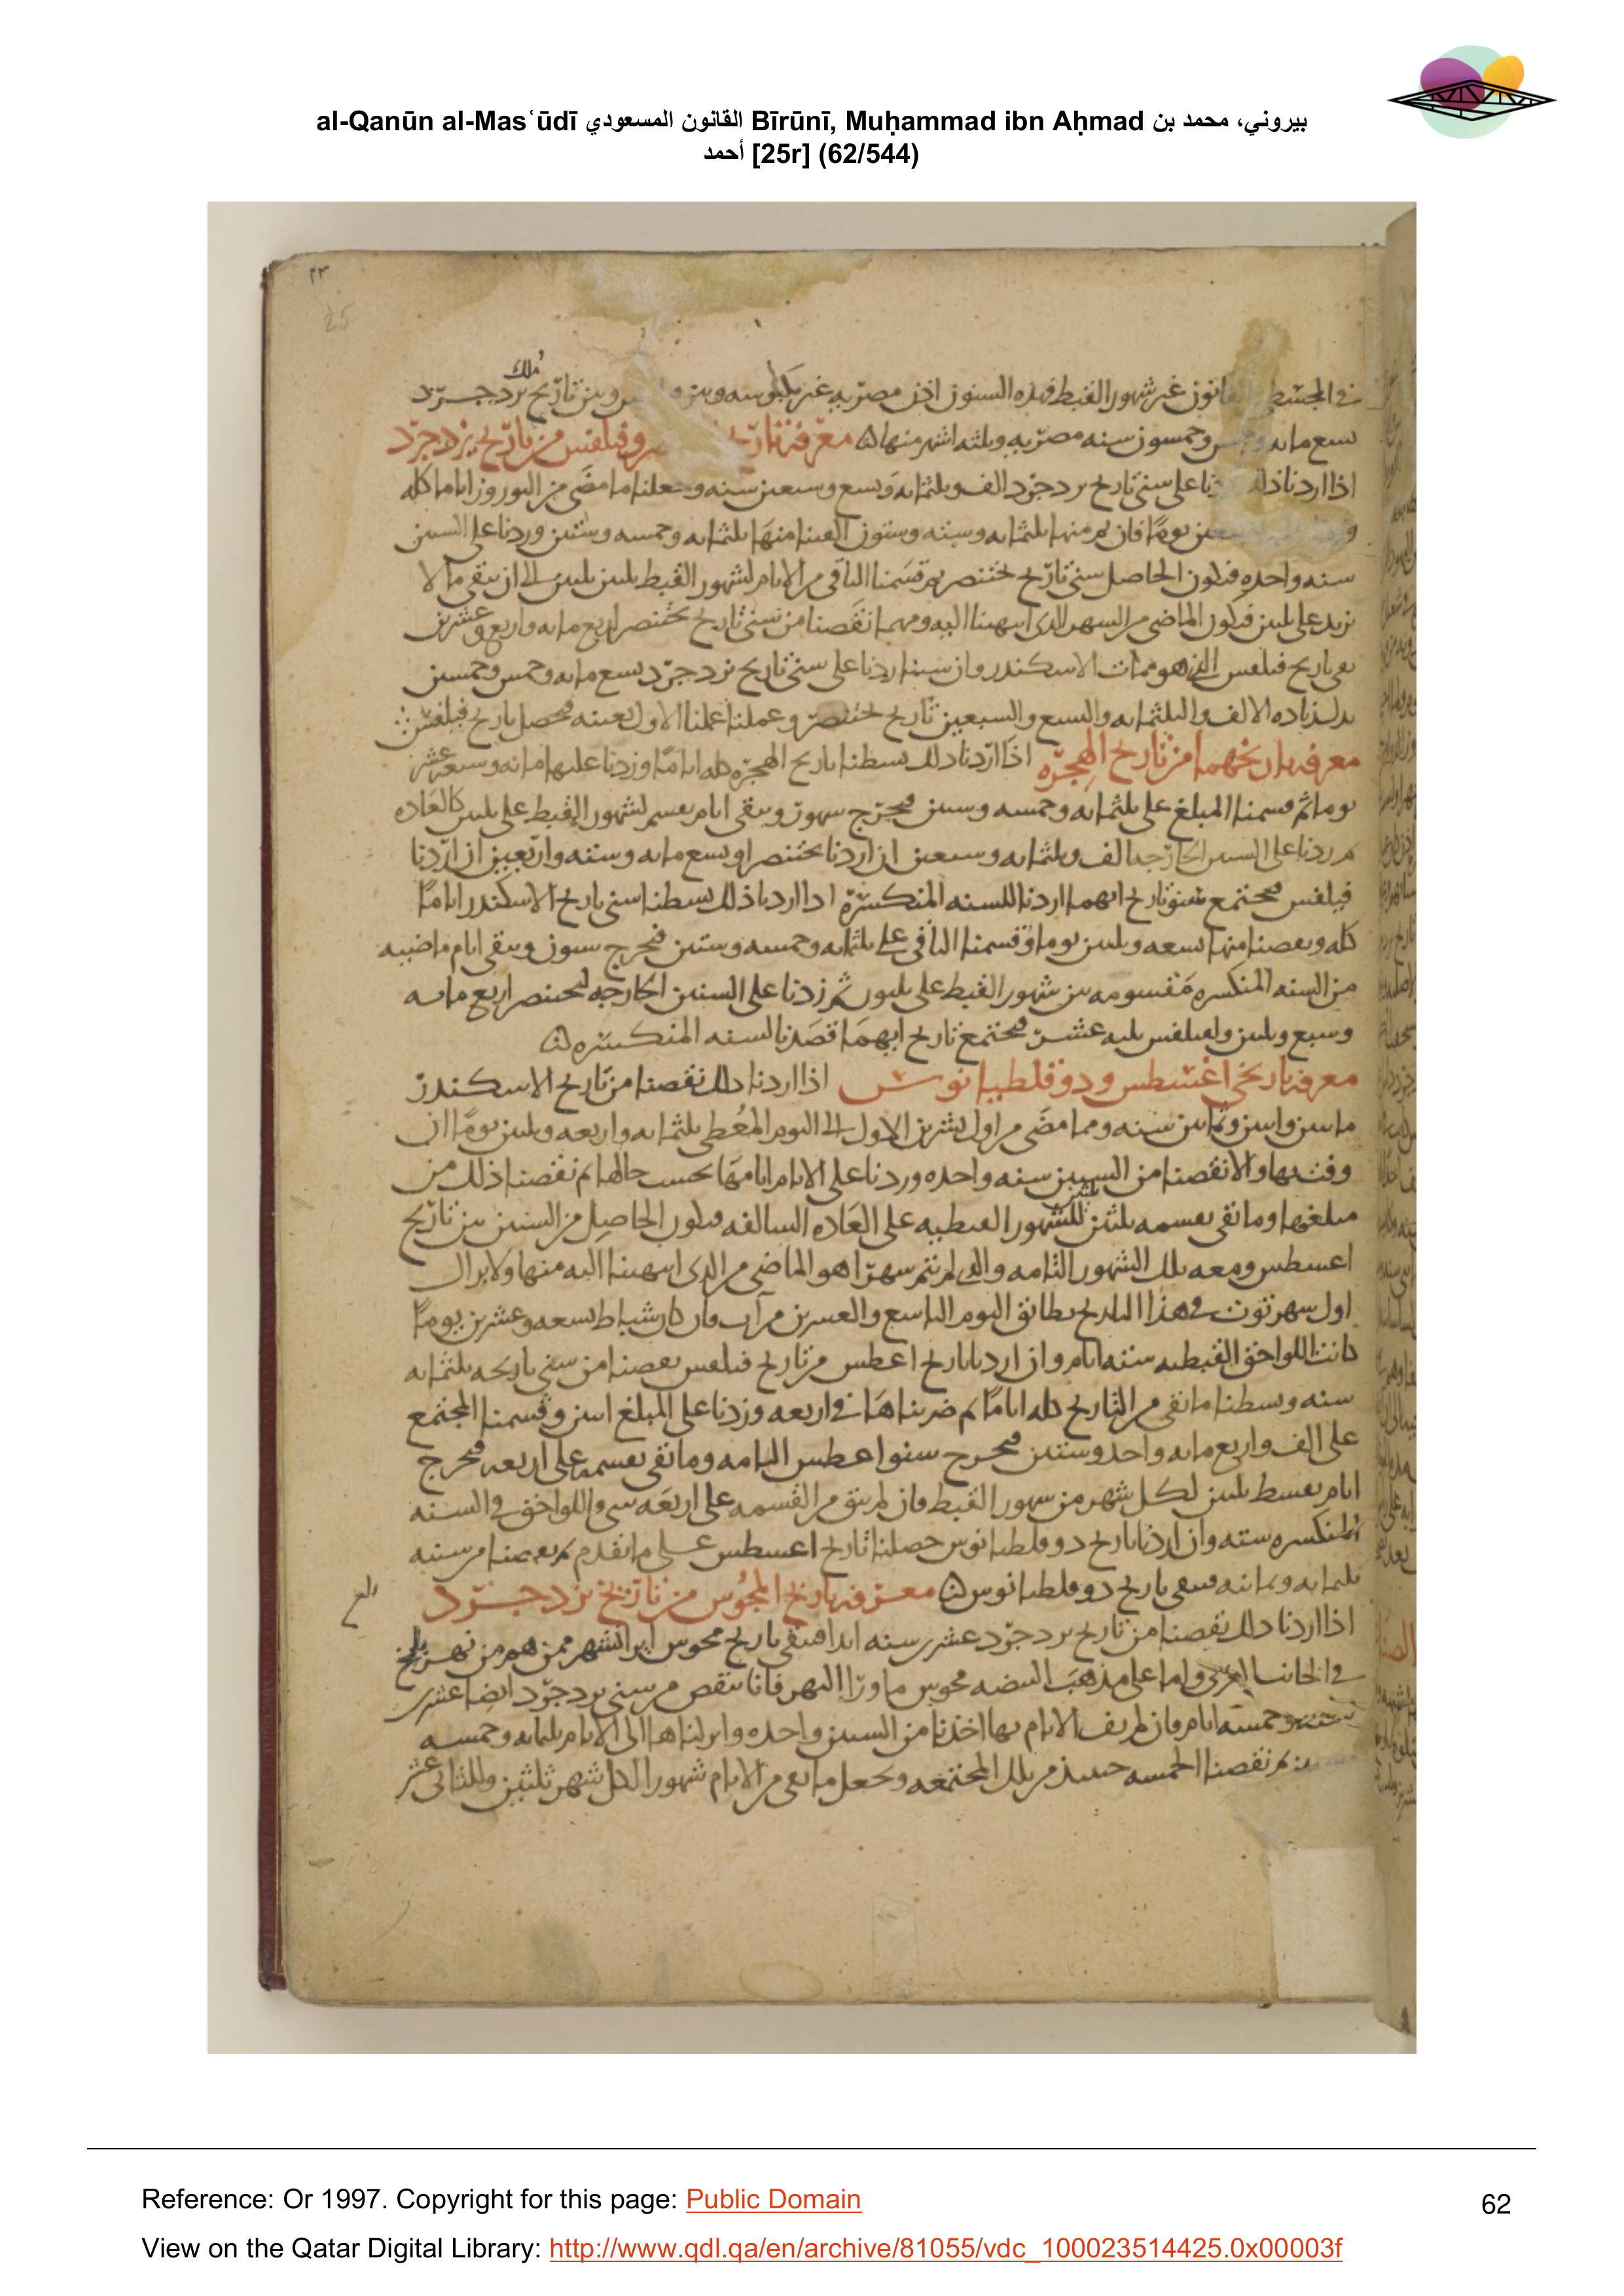 al-Qanūn al-Masʿūdī القانون المسعودي Bīrūnī, Muḥammad ibn Aḥmad بيروني، محمد بن
أحمد [25r] (62/544)
٢٣
25
ملك
في المجسطي غير شهور القبط فهذه السنون اذن مصريه غير مكبوسه وبين وبين تاريخ يزدجرد
سبع مايه وخمسون سنه مصريه وثلثه اشهر منها معرفة وفيلفس من تاريخ يزدجرد
اذا اردنا ذلك زدنا على سني تاريخ يزدجرد الف وثلثمايه وتسع وسبعين سنه وجعلنا ما مضى من النوروز اياما كله
يوما فان لم منها ثلثمايه وسته وستون القينا منها ثلثمايه وخمسه وستين وزدنا على السنين
سنه واحده فيكون الحاصل سني تاريخ بختنصر ثم قسمنا الباقي من الايام لشهور القبط ثلثين ثلثين الى ان يبقى ما لا
يزيد على ثلثين فيكون الماضي من الشهر الذي انتهينا اليه ومهما نقصنا من سني تاريخ بختنصر اربع مايه واربع وعشرين
بقي تاريخ فيلفس الذي هو ممات الاسكندر وان شينا زدنا على سني تاريخ يزدجرد تسع مايه وخمس وخمسين
بدل زياده الالف والثلثمايه والتسع والسبعين تاريخ بختنصر وعملنا عملنا الاول بعينه فيحصل تاريخ فيلفس
معرفه تاريخهما من تاريخ الهجره اذا اردنا ذلك بسطنا تاريخ الهجره كله اياما وزدنا عليها مايه وسبعه عشر
يوما ثم قسمنا المبلغ على ثلثمايه وخمسه وستين فيخرج سنون ويبقى ايام يقسم لشهور القبط على ثلثين كالعاده
ثم زدنا على السنين الخارجه الف وثلثمايه وسبعين ان اردنا بختنصر او تسع مايه وسته واربعين ان اردنا
فيلفس فيجتمع سنو تاريخ ايهما اردنا للسنه المنكسره اذا اردنا ذلك بسطنا سني تاريخ الاسكندر اياما
كله ونقصنا منها تسعه وثلثين يوما وقسمنا الباقي على ثلثمايه وخمسه وستين فيخرج سنون ويبقى ايام ماضيه
من السنه المنكسره مقسومه بين شهور القبط على ثلثين ثم زدنا على السنين الخارجه لبختنصر اربع مايه
وسبع وثلثين ولفيلفس ثلثه عشر فيجتمع تاريخ ايهما قصدنا لسنه المنكسره
معرفه تاريخي اغسطس ودوقلطيانوس اذا اردنا ذلك نقصنا من تاريخ الاسكندر
مايتين واثنين وثمانين سنه ومما مضى من اول تشرين الاول الى اليوم المعطى ثلثمايه واربعه وثلثين يوما ان
وفت بها والا نقصنا من السنين سنه واحده وزدنا على الايام ايامها بحسب حالها ثم نقصنا ذلك من
مبلغها وما بقي نقسمه ثلثين للشهور القبطيه على العاده السالفه فيكون الحاصل من السنين من تاريخ
اغسطس ومعه تلك الشهور التامه والذي لم يتم شهرا هو الماضي من الذي انتهينا اليه منها ولا يزال
اول شهر توت في هذا التاريخ يطابق اليوم التاسع والعشرين من آب فان كان شباط تسعه وعشرين يوما
كانت اللواحق القبطيه سته ايام وان اردنا تاريخ اغسطس من تاريخ فيلفس نقصنا من سني تاريخه ثلثمايه
سنه وبسطنا ما بقي من التاريخ كله اياما ثم ضربناها في اربعه وزدنا على المبلغ اثنين وقسمنا المجتمع
على الف واربع مايه واحد وستين فيخرج سنو اغسطس التامه وما بقي نقسمه على اربعه فيخرج
ايام بقسط ثلثين لكل شهر من شهور القبط فان لم يبق من القسمه على اربعه شي واللواحق في السنه
المنكسره سته وان اردنا تاريخ دوقلطيانوس حصلنا تاريخ اغسطس على ما تقدم ثم نقصنا من سنيه
ثلثمايه وثمانيه فيبقى تاريخ دوقلطيانوس معرفه تاريخ المجوس من تاريخ يزدجرد
اذا اردنا ذلك نقصنا من تاريخ يزدجرد عشرين سنه ابدا فيبقى تاريخ مجوس ايرانشهر ممن هم من نهر بلخ
في الجانب الغربي واما على مذهب المبيضه مجوس ماورا النهر فانا ننقص من سني يزدجرد ايضا عشرين
سنه وخمسه ايام فان لم يف الايام بها اخذنا من السنين واحده وانزلناها الى الايام ثلثمايه وخمسه
وستين ثم نقصنا الخمسه حينئذ من تلك المجتمعه ونجعل ما بقي من الايام شهورا لكل شهر ثلثين وللثاني عشر
Reference: Or 1997. Copyright for this page: Public Domain
62
View on the Qatar Digital Library: http://www.qdl.qa/en/archive/81055/vdc_100023514425.0x00003f